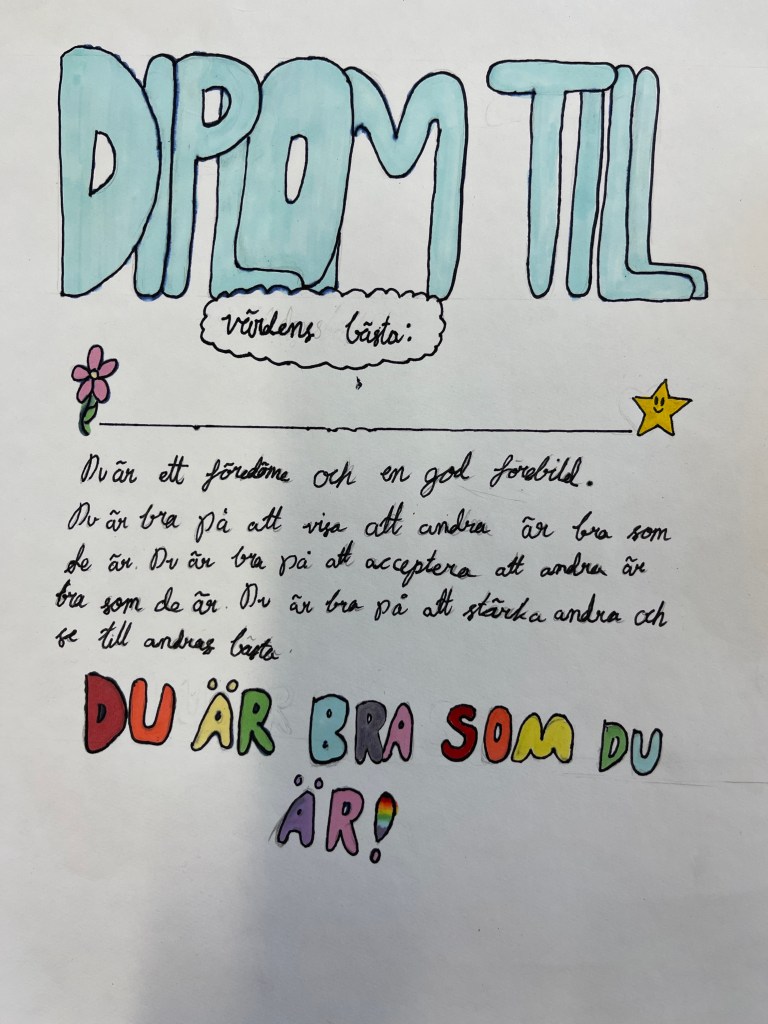 DIPLOM TILL
världens bästa:
Du är ett föredöme och en god förebild.
Du är bra på att visa att andra är bra som
de är. Du är bra på att acceptera att andra är
bra som de är. Du är bra på att stärka andra och
se till andras bästa.
DU ÄR BRA SOM DU
ÄR!